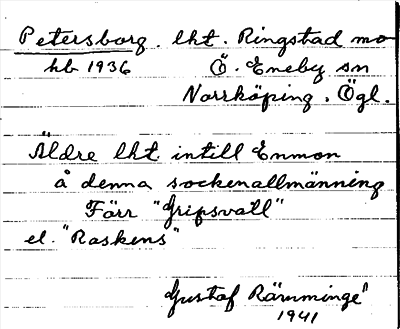 Petersborg. lht. Ringstad mo
hb 1936 Ö. Eneby sn
Norrköping. Ögl.
Äldre lht. intill Enmon
å denna sockenallmänning
Förr "Gripsvall"
el. "Raskens"
Gustaf Ramminge"
1941